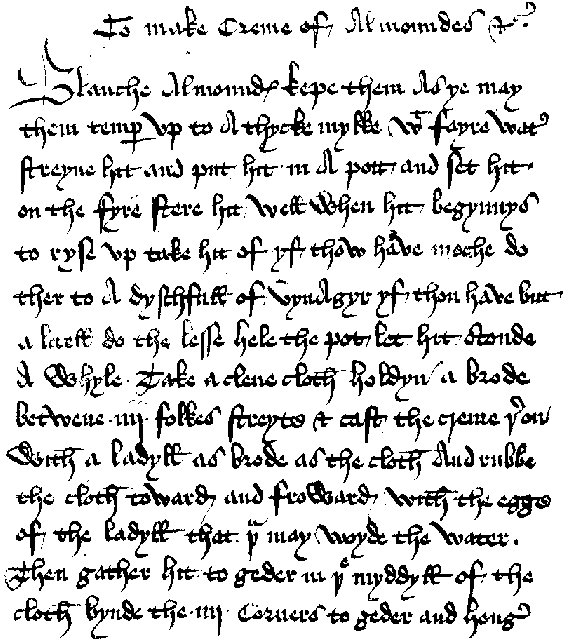 To make Creme of Almondes &c
Blanche Almond kepe them As ye may
them temp vp to A thycke mylke wt fayre wat
streyne hit and put hit in A pott and set hit
on the fyre stere hit well When hit begynnys
to ryse vp take hit of yf thow have moche do
ther to A dyschfull of vynAgyr yf thou have but
a lutell do the lesse hele the pot let hit stonde
A Whyle Take a clene cloth holdyn a brode
betwene iiij folkes streyte & cast the creme þon
With a ladyll as brode as the cloth And rubbe
the cloth toward and froWard with the egge
of the ladyll that þu may voyde the water.
Then gather hit to geder in þe myddyll of the
cloth bynde the iiij Corners to geder and hong